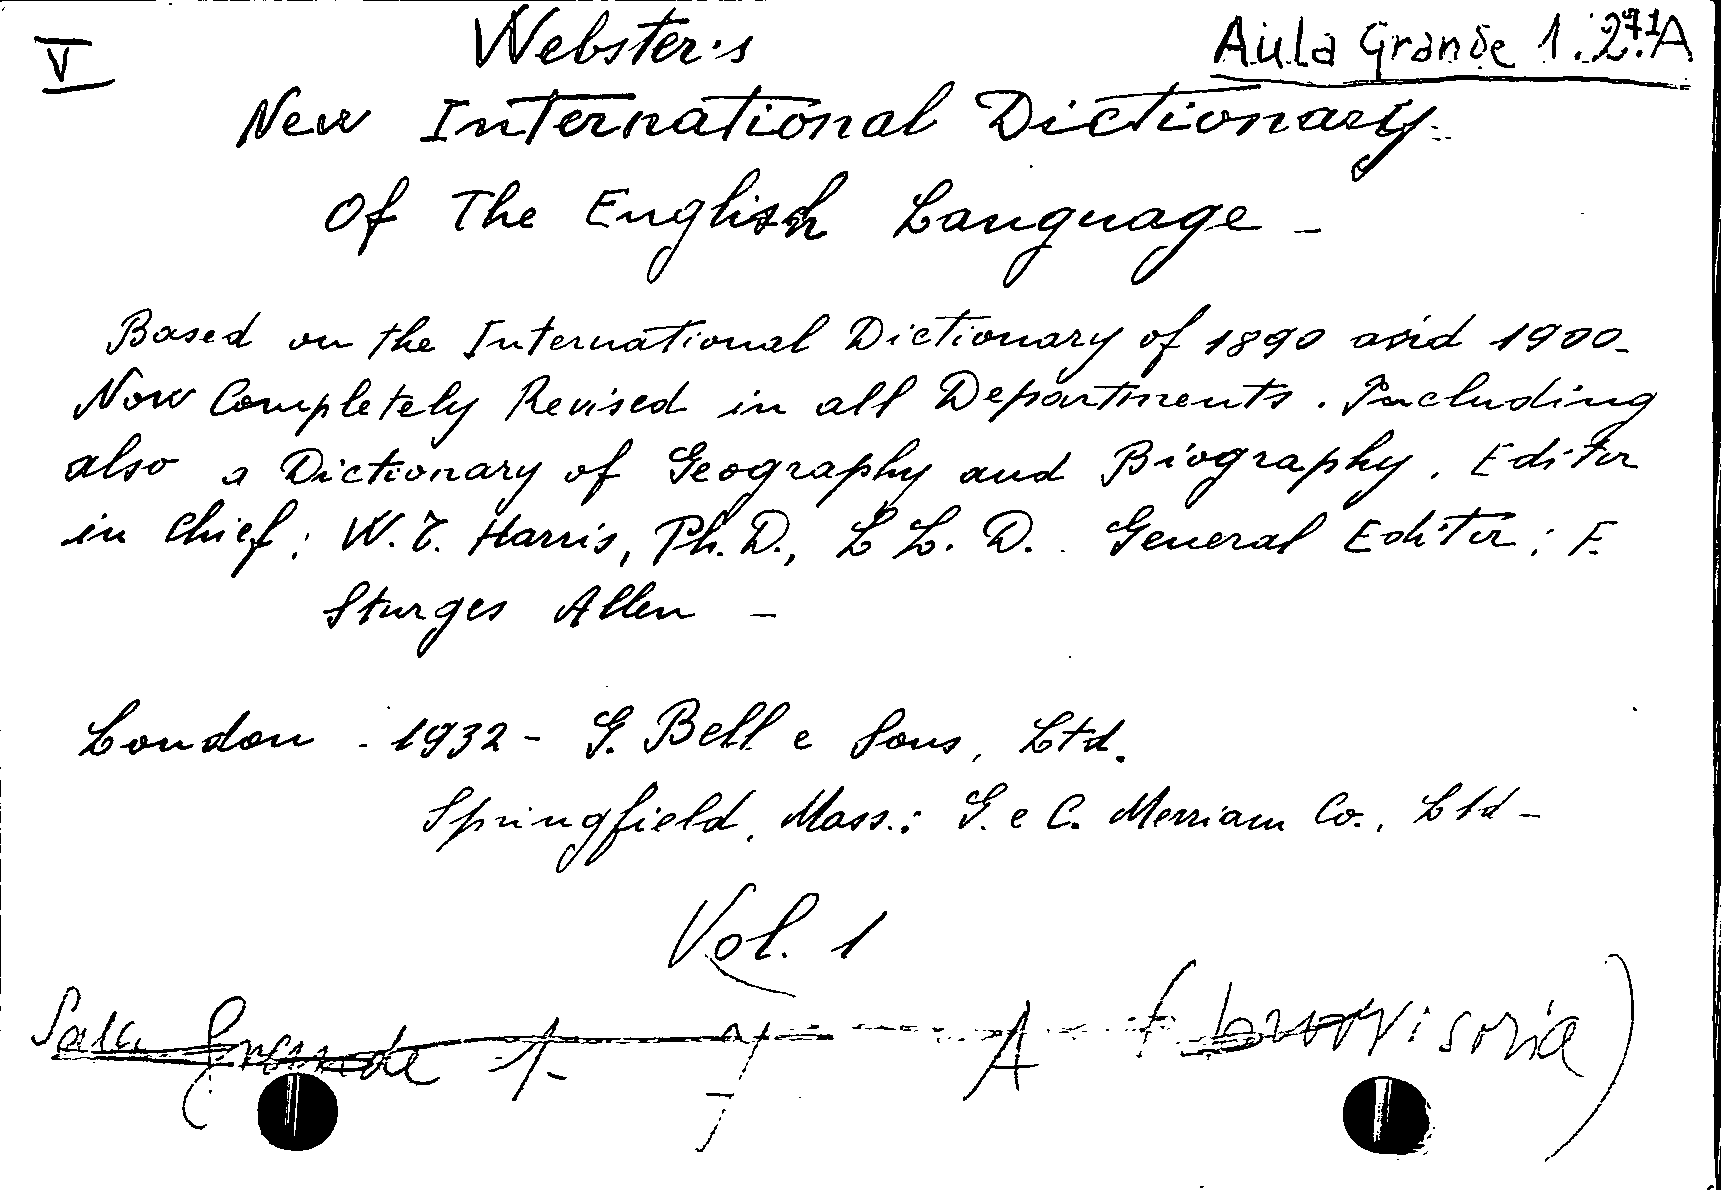 V
Webster's
Aula Grande 1.27.1A
New International Dictionary
Of The English Language -
Based on the International Dictionary of 1890 and 1900.
Now Completely Revised in all Departments. Including
also a Dictionary of Geography and Biography. Editor
in chief: W. T. Harris, Ph. D., L L. D. General Editor: F.
Sturges Allen -
London - 1932 - G. Bell e Sons, Ltd.
Springfield, Mass.: G. e C. Merriam Co., Ltd -
Vol. 1
Sala Grande 1- 7 A (provvisoria)